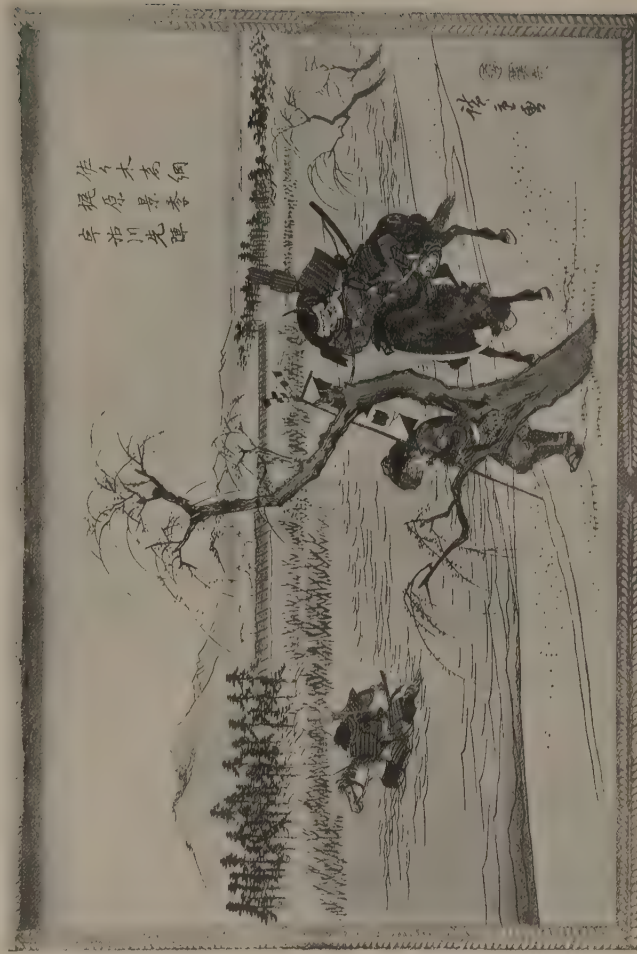 佐々木高綱
梶原景季
宇治川先陣